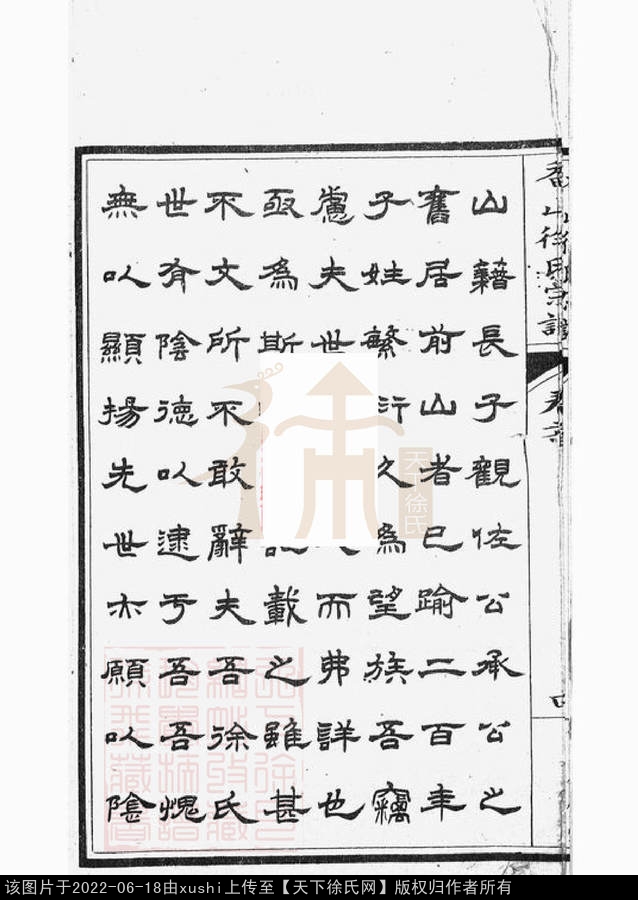 香山徐氏宗譜
卷首
山籍長子觀佐公承公之
舊居前山者已踰二百年
子姓繁衍之為望族吾竊
慮夫世而弗詳也
亟為斯載之雖甚
不文所不敢辭夫吾徐氏
世有陰德以逮于吾吾愧
無以顯揚先世亦願以陰
天下徐氏
该图片于2022-06-18由xushi上传至【天下徐氏网】版权归作者所有